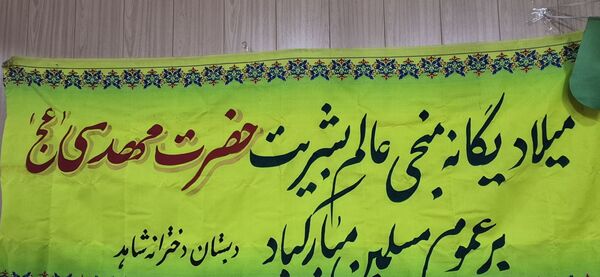 میلاد یگانه منجی عالم بشریت حضرت مهدی (عج)
بر عموم مسلمین مبارکباد
دبستان دخترانه شاهد